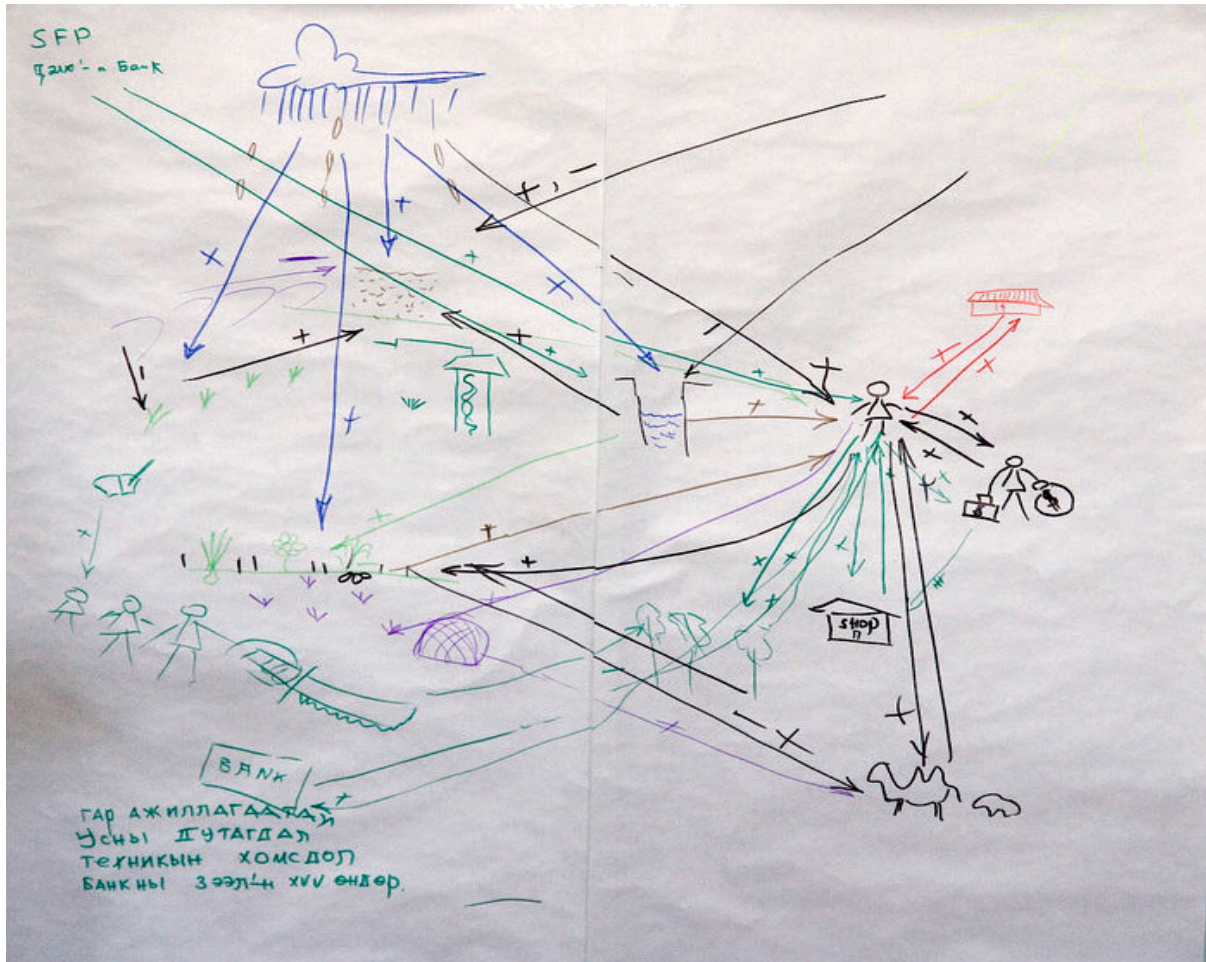 SFP
Банк
SHOP
BANK
ГАР АЖИЛЛАГААТАЙ
Усны ДУТАГДАЛ
ТЕХНИКЫН ХОМСДОЛ
БАНКНЫ ЗЭЭЛ'Н ХҮҮ ӨНДӨР.